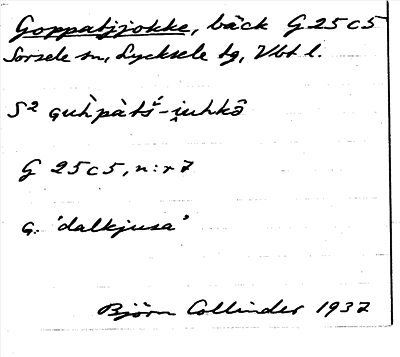 Goppatjjokke, bäck G 25 c 5
Sorsele sn, Lycksele tg, Vbt l.
S2
G 25 c 5, n:r 7
G. 'dalkjusa'
Björn Collinder 1937